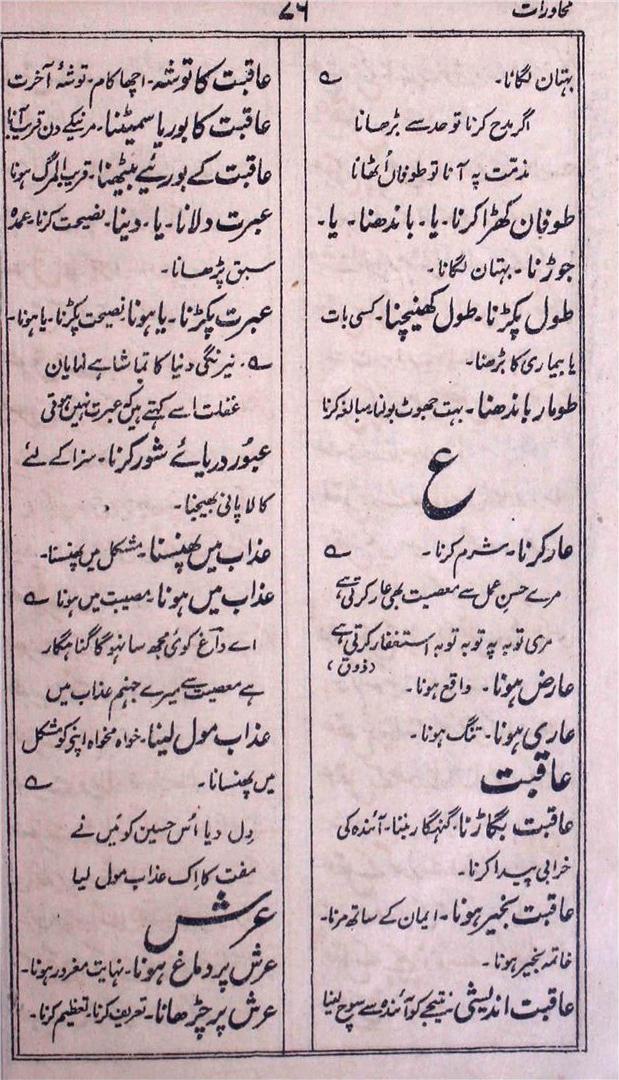 محاورات
۷۶
بہتان لگانا۔ ؎
اگر مدح کرنا تو حد سے بڑھانا
مذمّت پہ آنا تو طوفان اُٹھانا
طوفان کھڑا کرنا۔ یا۔ باندھنا۔ یا۔
جوڑنا۔ بہتان لگانا۔
طول پکڑنا۔ طول کھینچنا۔ کسی بات
یا بیماری کا بڑھنا۔
طومار باندھنا۔ بہت جھوٹ بولنا۔ مبالغہ کرنا
ع
عار کرنا۔ شرم کرنا۔ ؎
مرے حسنِ عمل سے معصیت بھی عار کرتی ہے
مری توبہ پہ توبہ توبہ استغفار کرتی ہے
(ذوق)
عارض ہونا۔ واقع ہونا۔
عاری ہونا۔ تنگ ہونا۔
عاقبت
عاقبت بگاڑنا۔ گنہگار بننا۔ آئندہ کی
خرابی پیدا کرنا۔
عاقبت بخیر ہونا۔ ایمان کے ساتھ مرنا۔
خاتمہ بخیر ہونا۔
عاقبت اندیشی نتیجے کو آئندہ سے سوچ لینا
عاقبت کا توشہ۔ اچھا کام۔ توشۂ آخرت
عاقبت کا بوریا سمیٹنا۔ مرنیکے دن قریب آنا
عاقبت کے بورئیے بیٹھنا۔ قریب المرگ ہونا
عبرت دلانا۔ یا۔ دینا۔ نصیحت کرنا۔ عمدہ
سبق پڑھانا۔
عبرت پکڑنا۔ یا ہونا۔ نصیحت پکڑنا۔ یا ہونا۔
؎ نیرنگیِ دنیا کا تماشا ہے نمایان
غفلت اسے کہتے ہیں کہ عبرت نہیں ہوتی
عبُور دریائے شور کرنا۔ سزا کے لئے
کالا پانی بھیجنا۔
عذاب میں پھنسنا۔ مشکل میں پھنسنا۔
عذاب میں ہونا۔ مصیبت میں ہونا ؎
اے داغ کوئی مجھ سا نہو گا گناہگار
ہے معصیت سے میرے جہنم عذاب میں
عذاب مول لینا۔ خواہ مخواہ اپنی کو مشکل
میں پھنسانا۔ ؎
دِل دیا اُس حسین کو میں نے
مفت کا اِک عذاب مول لیا
عرش
عرش پر دماغ ہونا۔ نہایت مغرور ہونا۔
عرش پر چڑھانا۔ تعریف کرنا۔ تعظیم کرنا۔